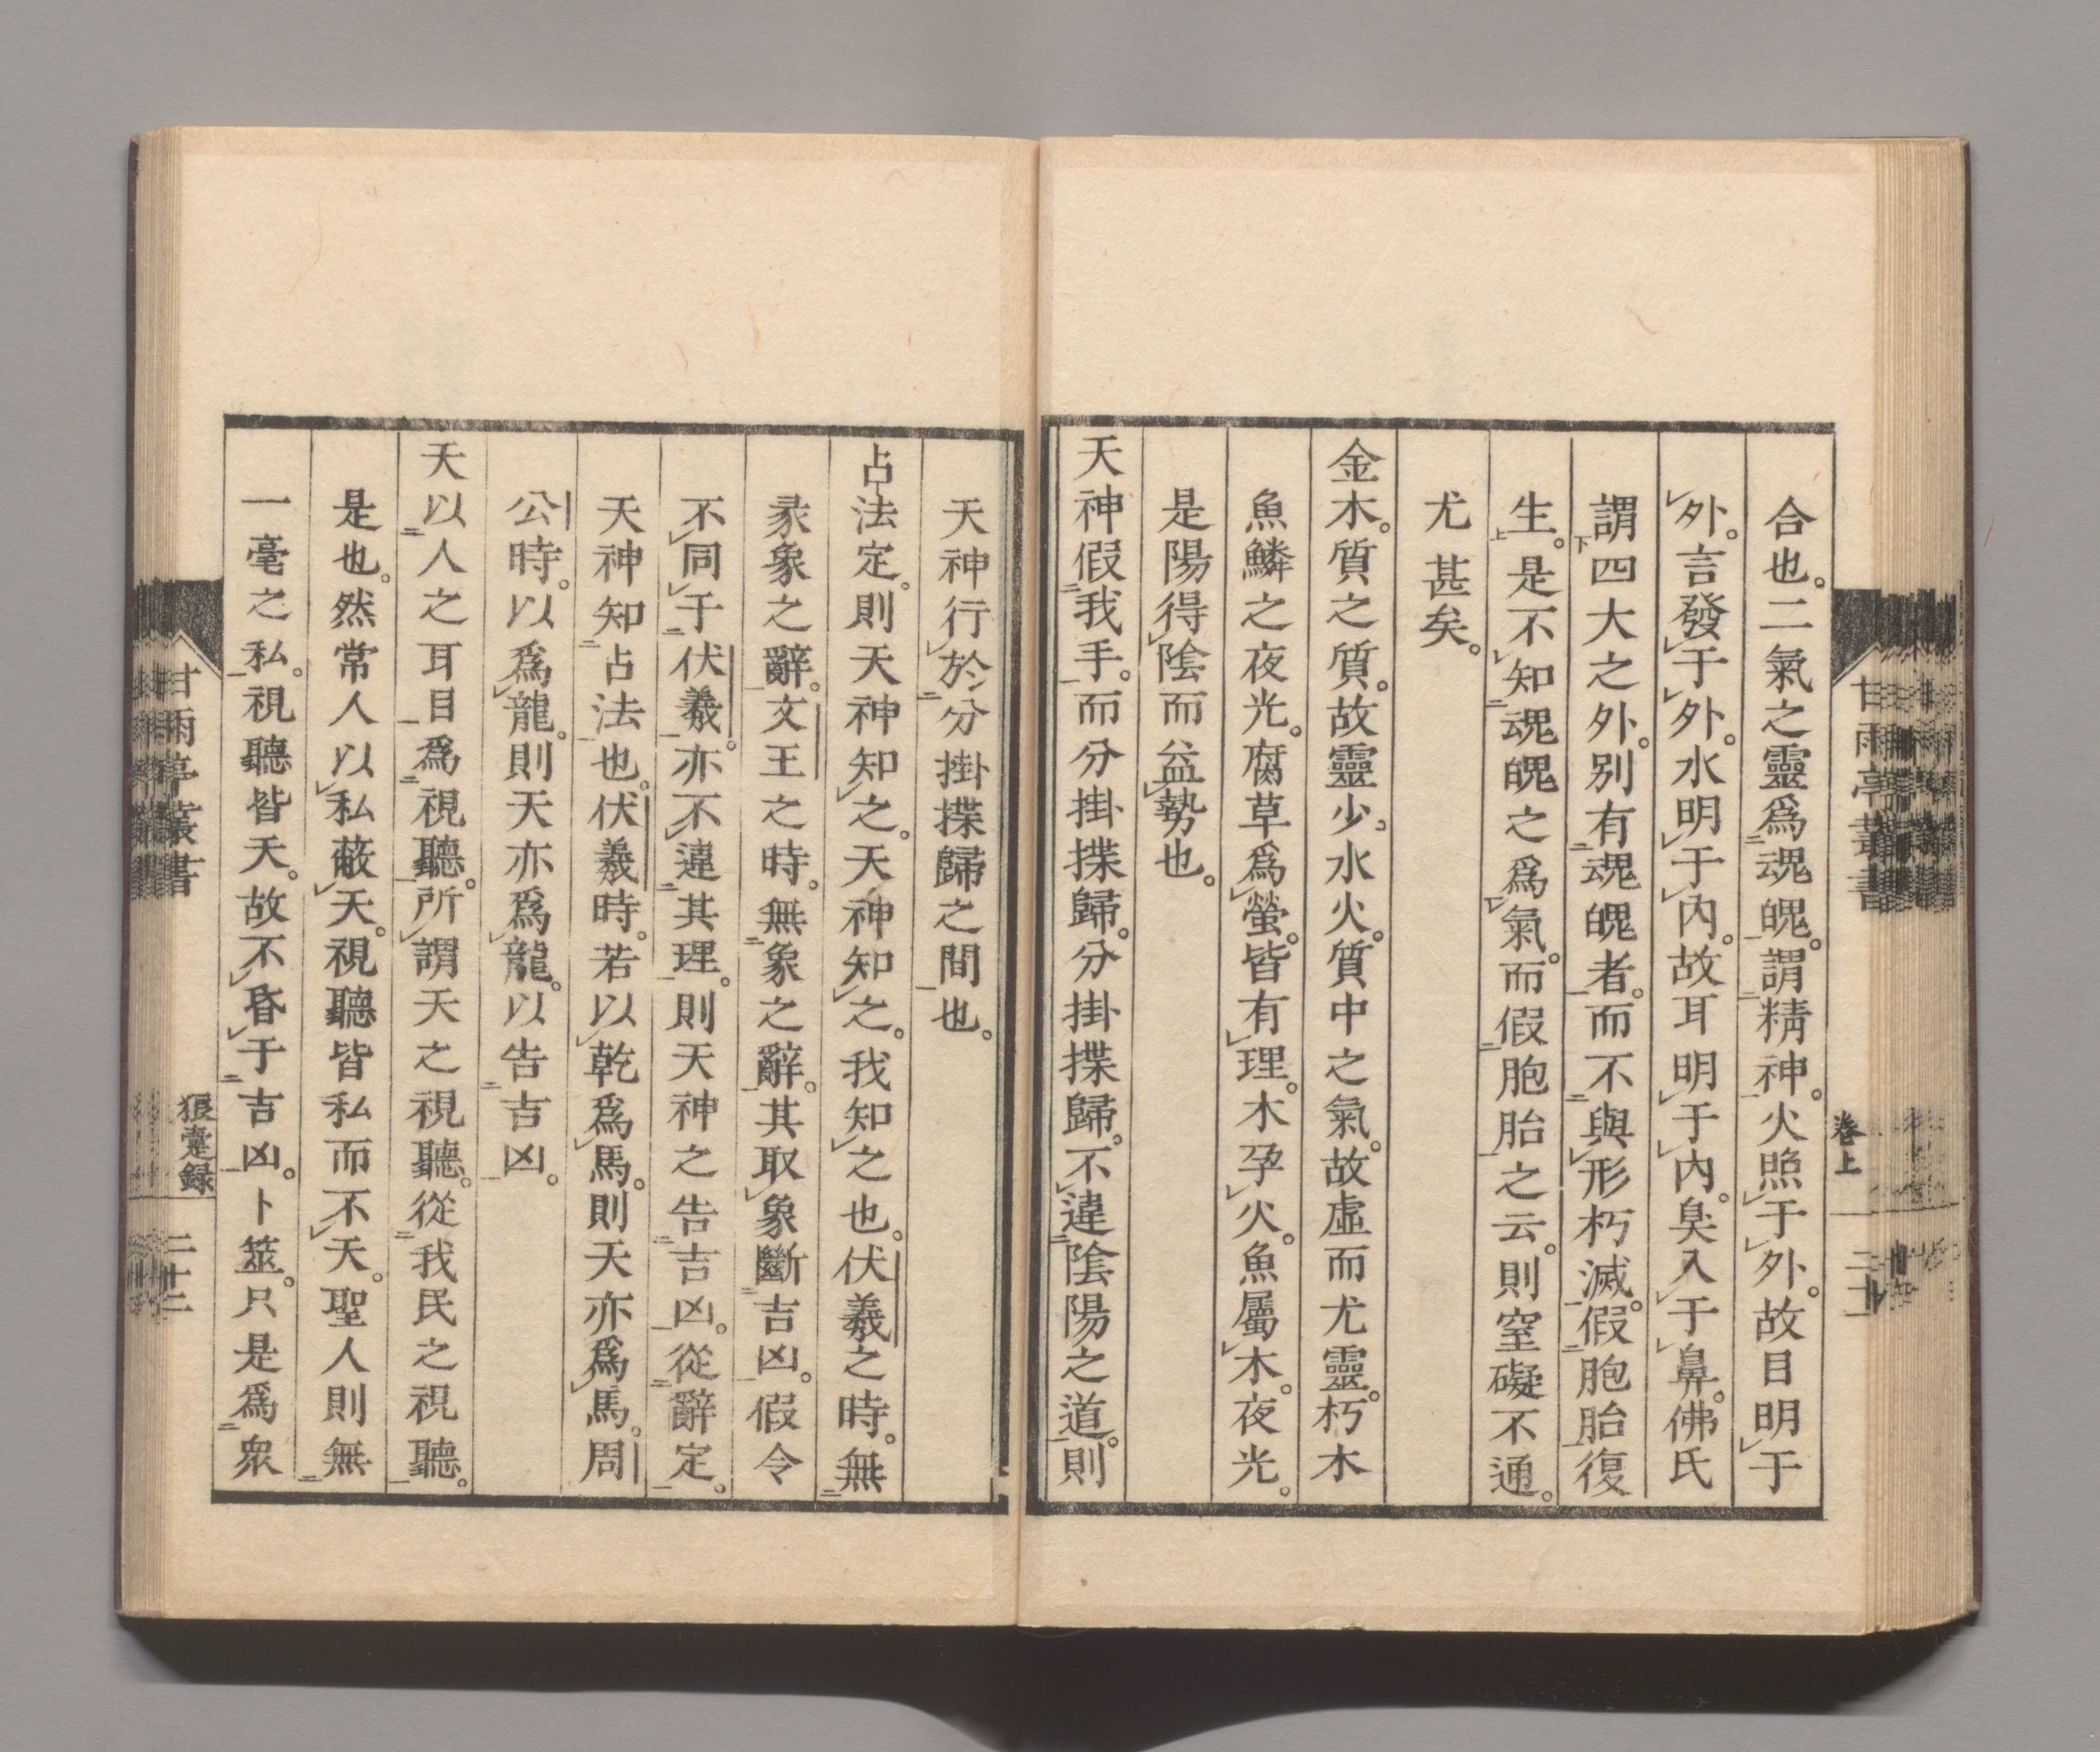 合也。二氣之靈爲魂魄。謂精神。火照于外。故目明于
外。言發于外。水明于內。故耳明于內。臭入于鼻。佛氏
謂四大之外。別有魂魄者。而不與形朽滅。假胞胎復
生。是不知魂魄之爲氣。而假胞胎之云。則窒礙不通。
尤甚矣。
金木。質之質。故靈少。水火。質中之氣。故虛而尤靈。朽木
魚鱗之夜光。腐草爲螢。皆有理。木孕火。魚屬木。夜光。
是陽得陰而益勢也。
天神假我手。而分掛揲歸。分掛揲歸。不違陰陽之道。則
卷上
天神行於分掛揲歸之間也。
占法定。則天神知之。天神知之。我知之也。伏羲之時。無
彖象之辭。文王之時。無象之辭。其取象斷吉凶。假令
不同于伏羲。亦不違其理。則天神之告吉凶。從辭定。
天神知占法也。伏羲時。若以乾爲馬。則天亦爲馬。周
公時。以爲龍。則天亦爲龍。以告吉凶。
天以人之耳目爲視聽。所謂天之視聽。從我民之視聽。
是也。然常人以私蔽天。視聽皆私而不天。聖人則無
一毫之私。視聽皆天。故不昏于吉凶。卜筮。只是爲衆
甘雨亭叢書
狼疐録
二十三